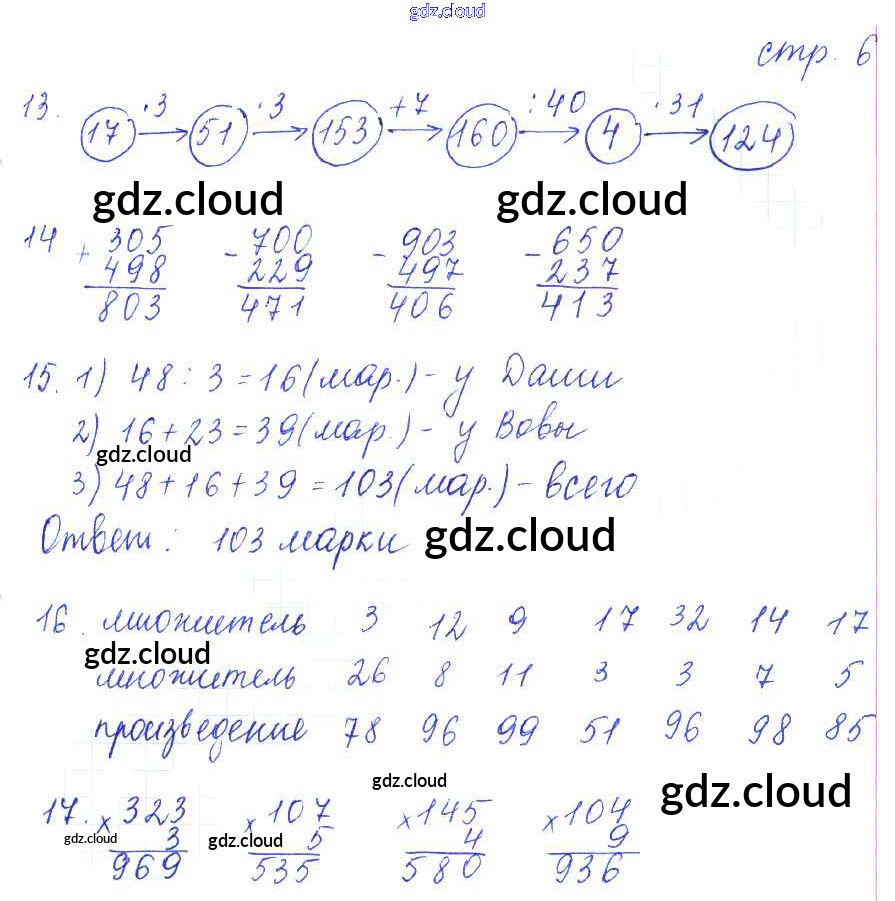 gdz.cloud
стр. 6
13. 17 ·3 → 51 ·3 → 153 +7 → 160 :40 → 4 ·31 → 124
gdz.cloud gdz.cloud
14 + 305 - 700 - 903 - 650
498 229 497 237
803 471 406 413
15. 1) 48 : 3 = 16 (мар.) - у Даши
2) 16 + 23 = 39 (мар.) - у Вовы
gdz.cloud
3) 48 + 16 + 39 = 103 (мар.) - всего
Ответ: 103 марки gdz.cloud
16. множитель 3 12 9 17 32 14 17
gdz.cloud
множитель 26 8 11 3 3 7 5
произведение 78 96 99 51 96 98 85
gdz.cloud gdz.cloud
17. × 323 × 107 × 145 × 104
3 5 4 9
gdz.cloud gdz.cloud
969 535 580 936